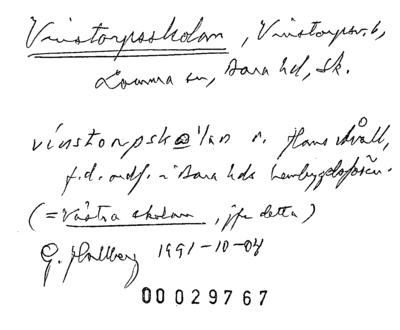 Vinstorpsskolan, Vinstorpsv. 6,
Lomma sn, Bara hd, Sk.
vinstorpskolan
f.d. ordf. i Bara hds hembygdsfören.
(= Västra skolan, jfr detta)
G. Hallberg 1991-10-04
00029767